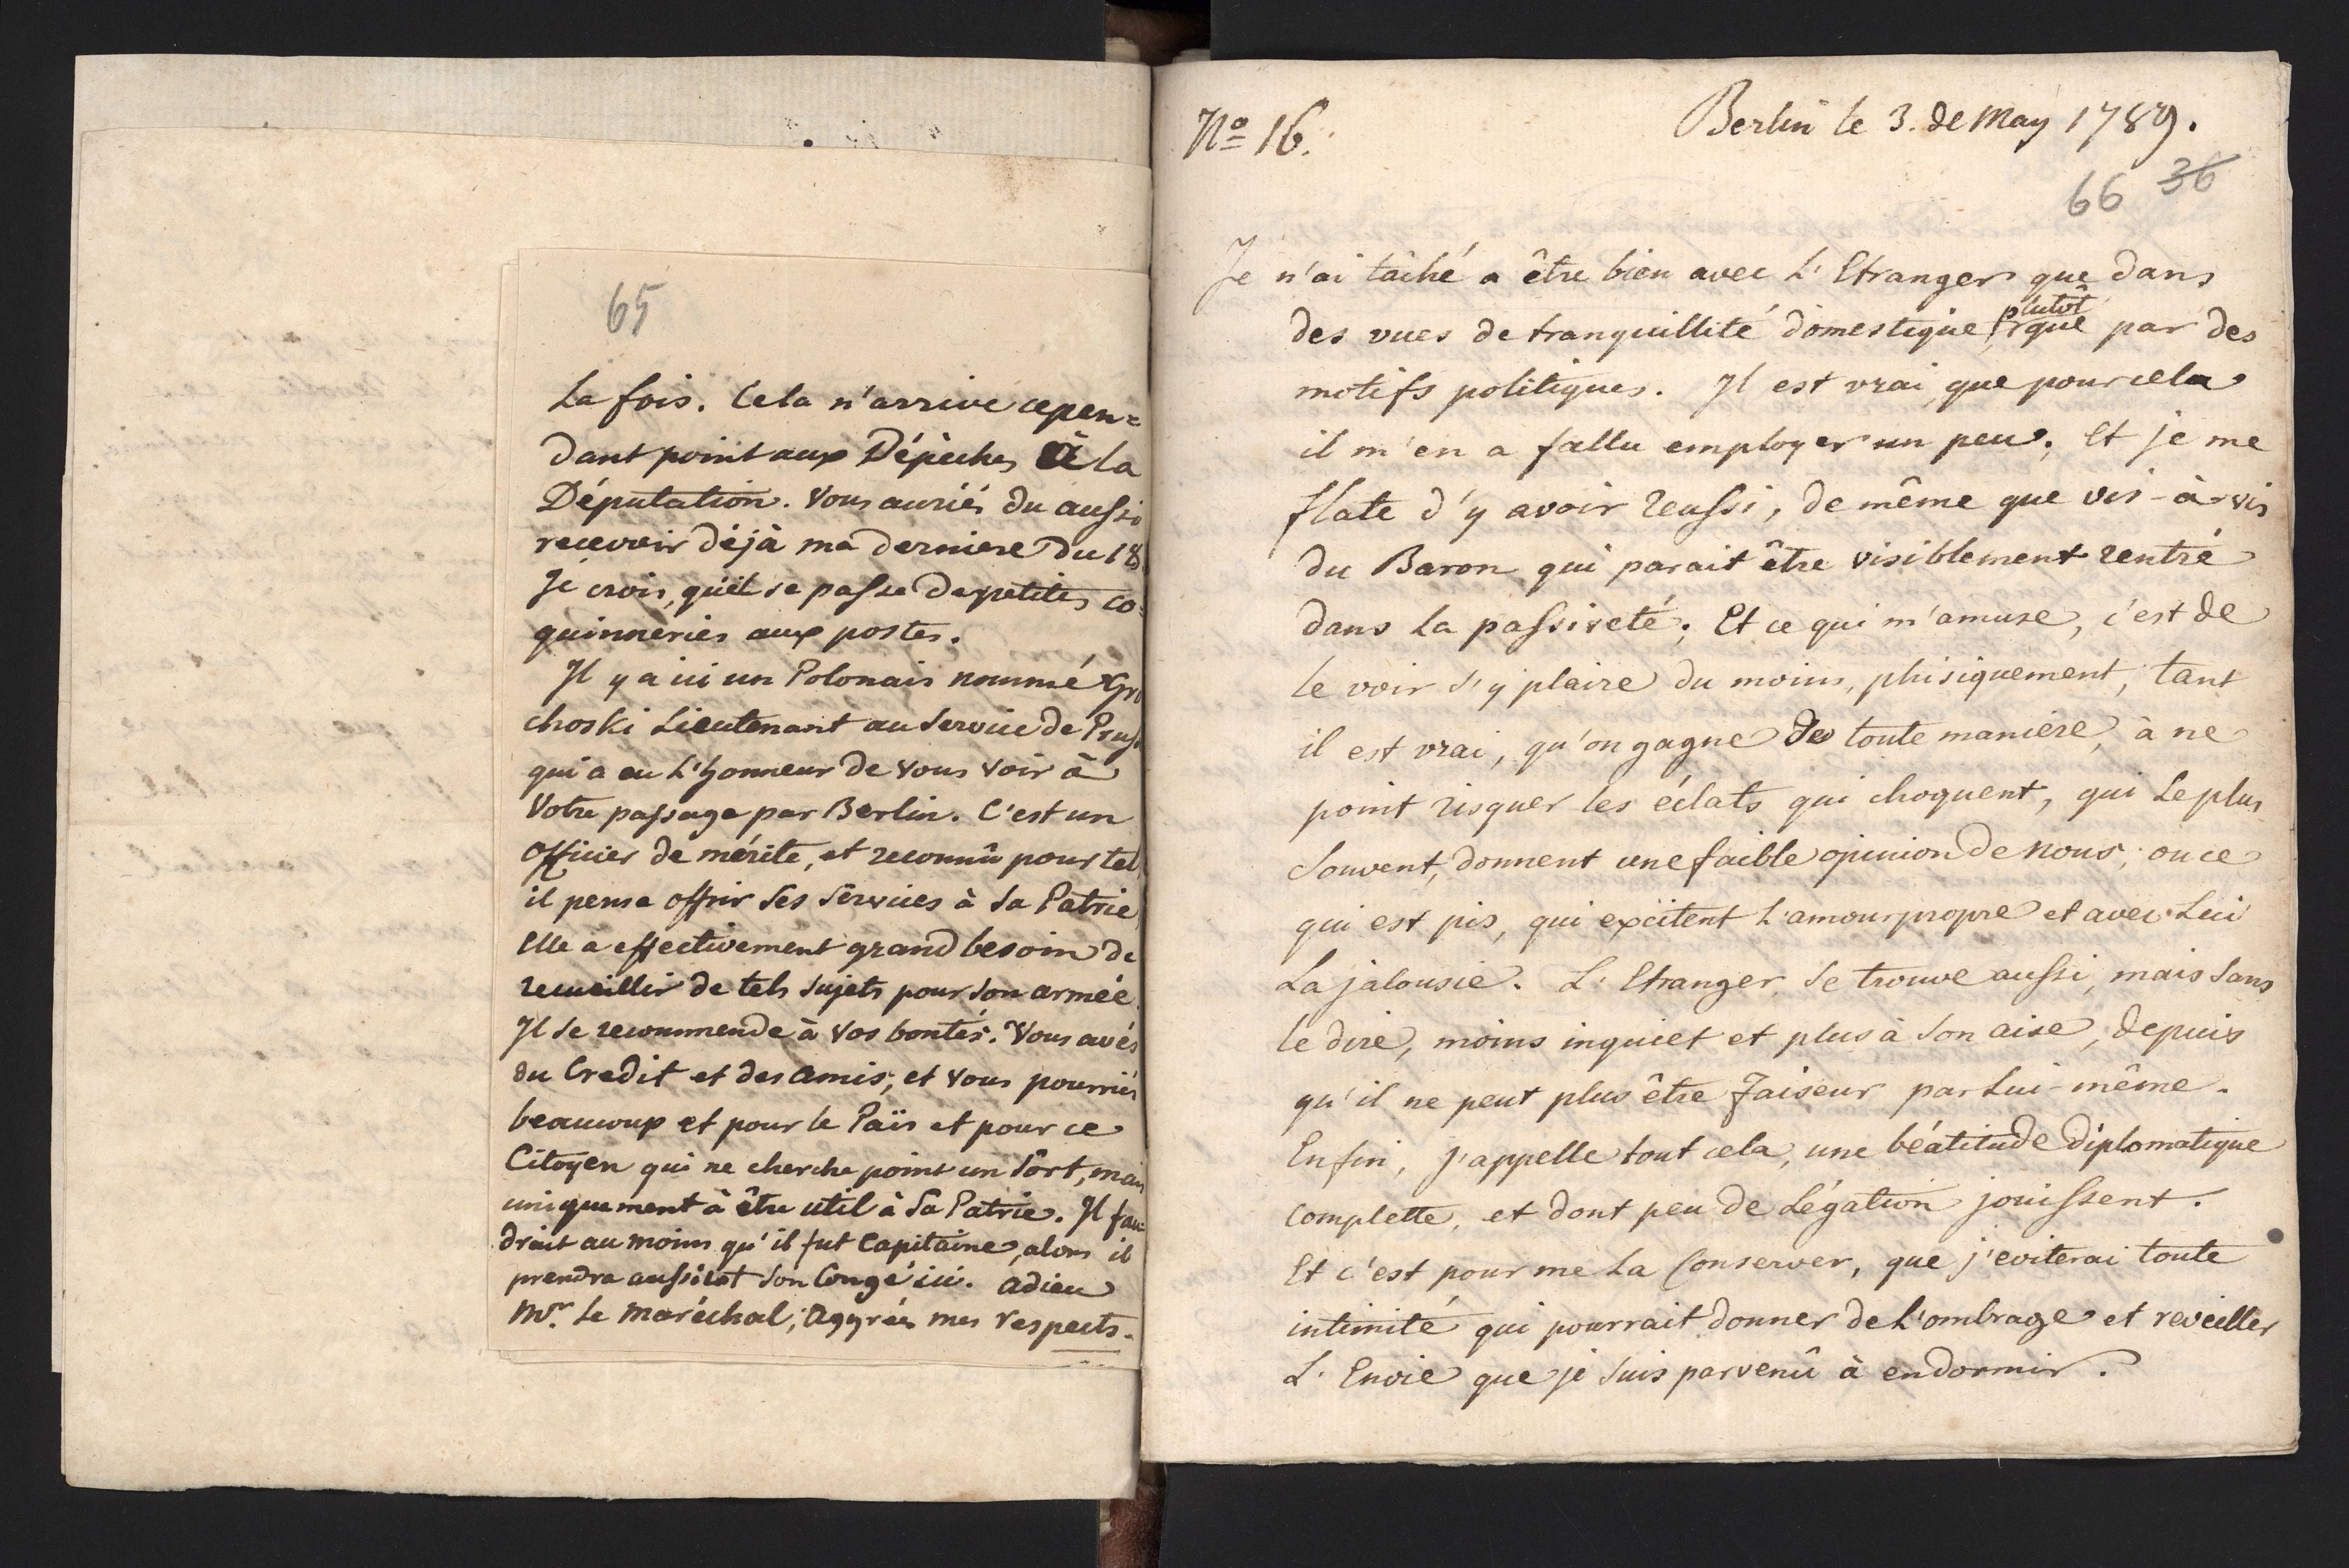 65
La fois. Cela n'arrive cepen=
dant point aux Dépèches à la
Députation. Vous auriés du aussi
recevoir déjà ma derniere du 18
Je crois, qu'il se passe de petites co=
quinneries aux postes.
Il y a ici un Polonais nommé Gro
choski Lieutenant au Service de Pruss
qui a eu L'honneur de Vous Voir à
Votre passage par Berlin. C'est un
Officier de mérite, et reconnû pour tel,
il pense offrir Ses Services à Sa Patrie
Elle a effectivement grand besoin de
recueillir de tels Sujets pour Son armée.
Il Se recommende à Vos bontés. Vous avés
du Credit et des Amis, et Vous pourriés
beaucoup et pour le Païs et pour ce
Citoyen qui ne cherche point un Sort, mais
uniquement à être util à Sa Patrie. Il fau=
drait au moins qu'il fut Capitaine, alors il
prendra aussitot Son Congé ici. adieu
Mr. le Maréchal; Aggréés mes respects.
No 16.
Berlin le 3. de May 1789.
66 36
Je n'ai tâché a être bien avec L'Etranger que dans
plutôt
des vues de tranquillité domestique, que par des
motifs politiques. Il est vrai, que pour cela
il m'en a fallu employer un peu; Et je me
flate d'y avoir reussi, de même que vis-à-vis
du Baron qui parait être visiblement rentré
dans la passiveté; Et ce qui m'amuse, c'est de
le voir s'y plaire du moins, phisiquement, tant
il est vrai, qu'on gagne de toute manière, à ne
point risquer les éclats qui choquent, qui Le plus
Souvent, donnent une faible opinion de nous; ou ce
qui est pis, qui excitent L'amour propre et avec Lui
La jalousie. L'Etranger, Se trouve aussi, mais Sans
le dire, moins inquiet et plus à Son aise, depuis
qu'il ne peut plus être faiseur par Lui-même.
Enfin, j'appelle tout cela, une béatitude diplomatique
complette, et dont peu de Légation jouissent.
Et c'est pour me La Conserver, que j'eviterai toute
intimité qui pourrait donner de L'ombrage et reveiller
L'Envie que je Suis parvenû à endormir.